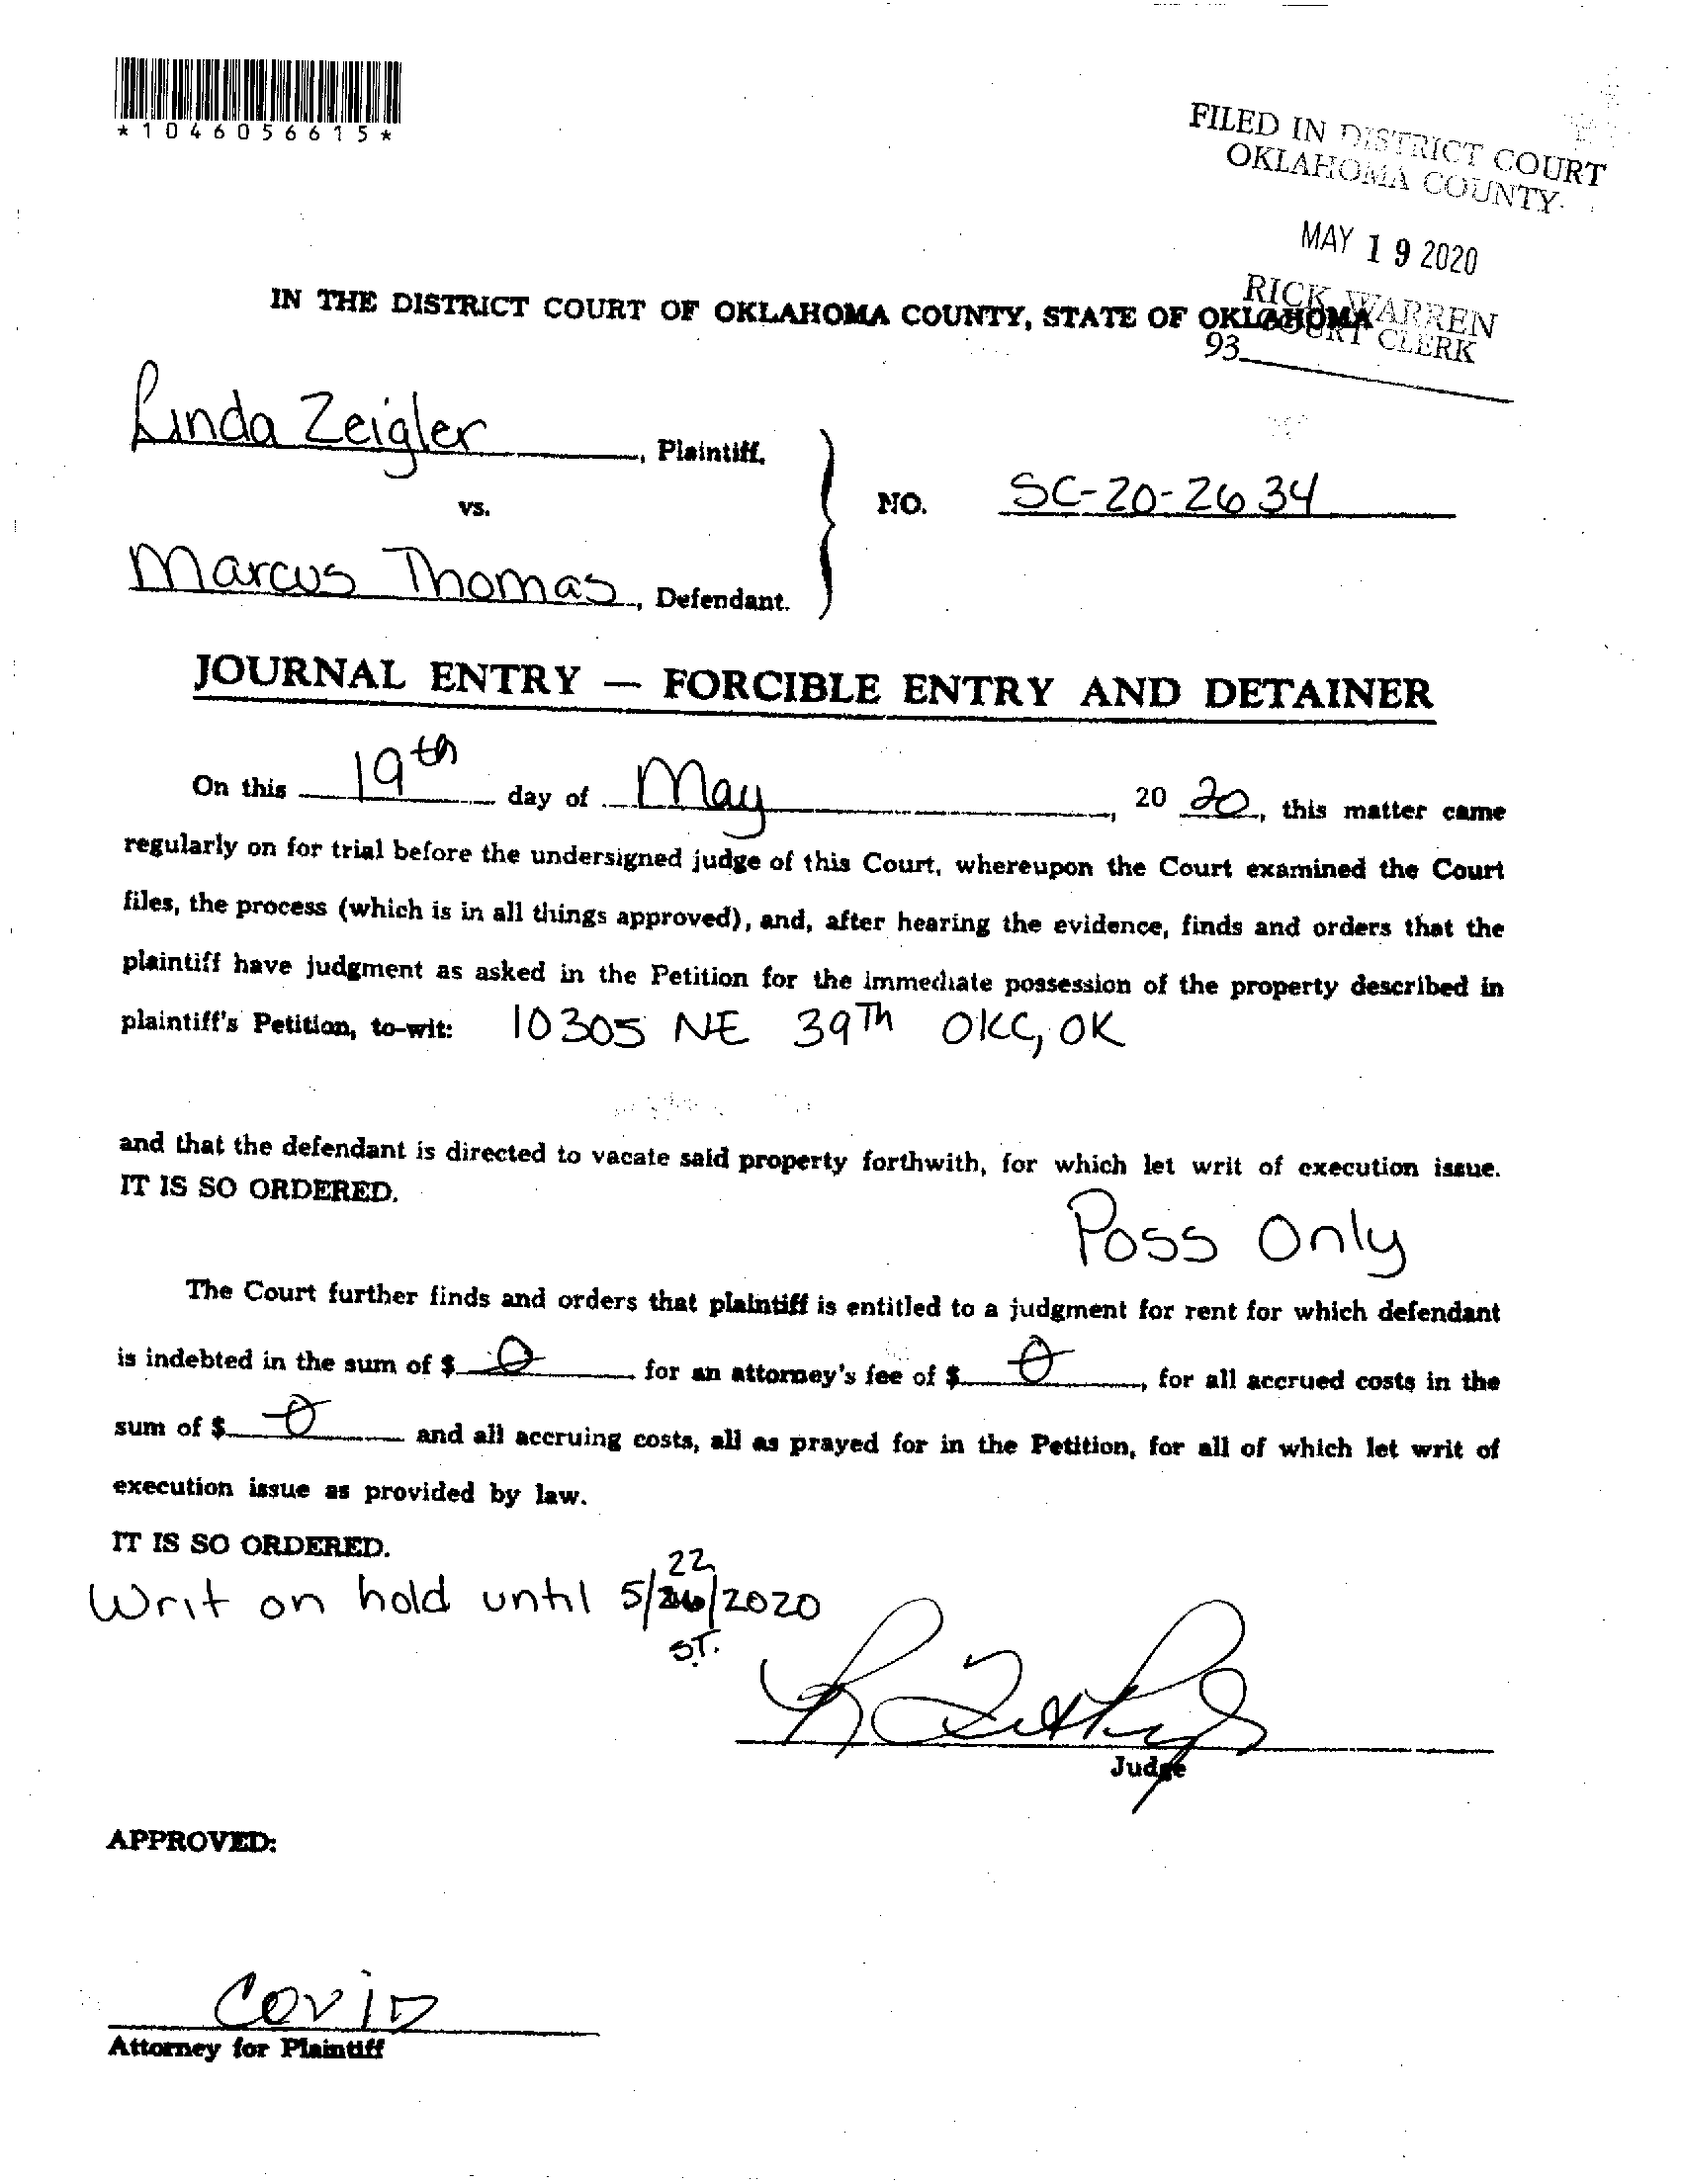 *1046056615*
FILED IN DISTRICT COURT
OKLAHOMA COUNTY
MAY 19 2020
RICK WARREN
COURT CLERK
93
IN THE DISTRICT COURT OF OKLAHOMA COUNTY, STATE OF OKLAHOMA
Linda Zeigler, Plaintiff,
vs.
NO. SC-20-2634
Marcus Thomas, Defendant.
JOURNAL ENTRY — FORCIBLE ENTRY AND DETAINER
On this 19th day of May, 20 20, this matter came
regularly on for trial before the undersigned judge of this Court, whereupon the Court examined the Court
files, the process (which is in all things approved), and, after hearing the evidence, finds and orders that the
plaintiff have judgment as asked in the Petition for the immediate possession of the property described in
plaintiff's Petition, to-wit: 10305 NE 39Th OKC, OK
and that the defendant is directed to vacate said property forthwith, for which let writ of execution issue.
IT IS SO ORDERED.
Poss Only
The Court further finds and orders that plaintiff is entitled to a judgment for rent for which defendant
is indebted in the sum of $ 0 for an attorney's fee of $ 0, for all accrued costs in the
sum of $ 0 and all accruing costs, all as prayed for in the Petition, for all of which let writ of
execution issue as provided by law.
IT IS SO ORDERED.
22
Writ on hold until 5/26/2020
S.T.
Judge
APPROVED:
COVID
Attorney for Plaintiff